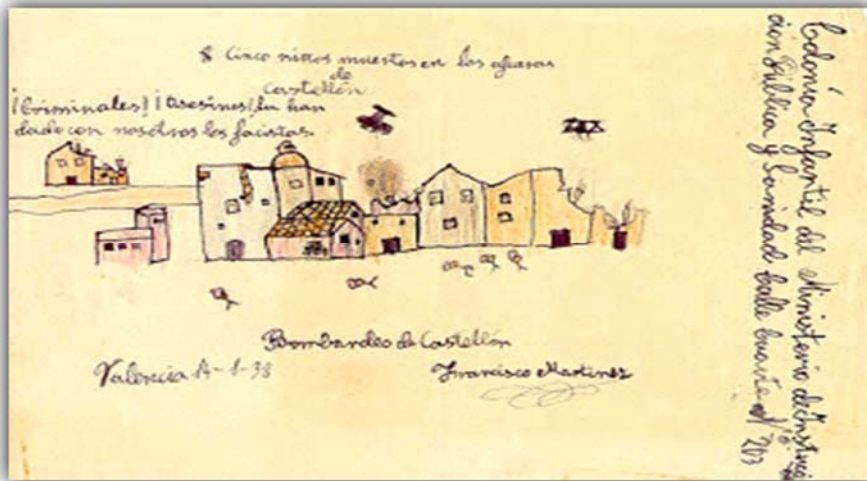 8 Cinco niños muertos en las afueras
de
Castellón
¡Criminales! ¡Asesinos! lu han
dado con nosotros los facistas.
Bombardeo de Castellón
Valencia 14-1-38
Francisco Martinez
Colonia Infantil del Ministerio de Instruc
ción Pública y Sanidad Calle Nº 203